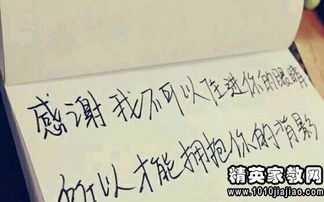 感谢我不可以住进你的眼睛
所以才能拥抱你的背影
精英家教网
www.1010jiajiao.com